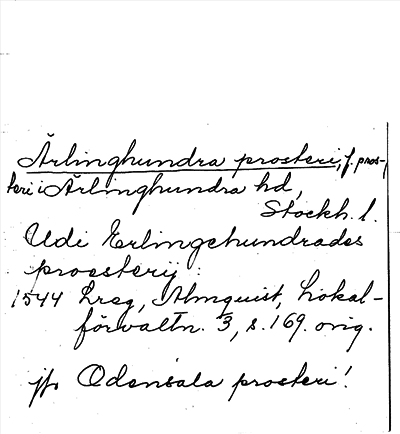 Ärlinghundra prosteri, f. pros-
teri i Ärlinghundra hd,
Stockh. l.
Udi Erlingehundrades
proesterij :
1544 Lreg, Almquist, Lokal-
förvaltn. 3, s. 169. orig.
jfr Odensala prosteri!